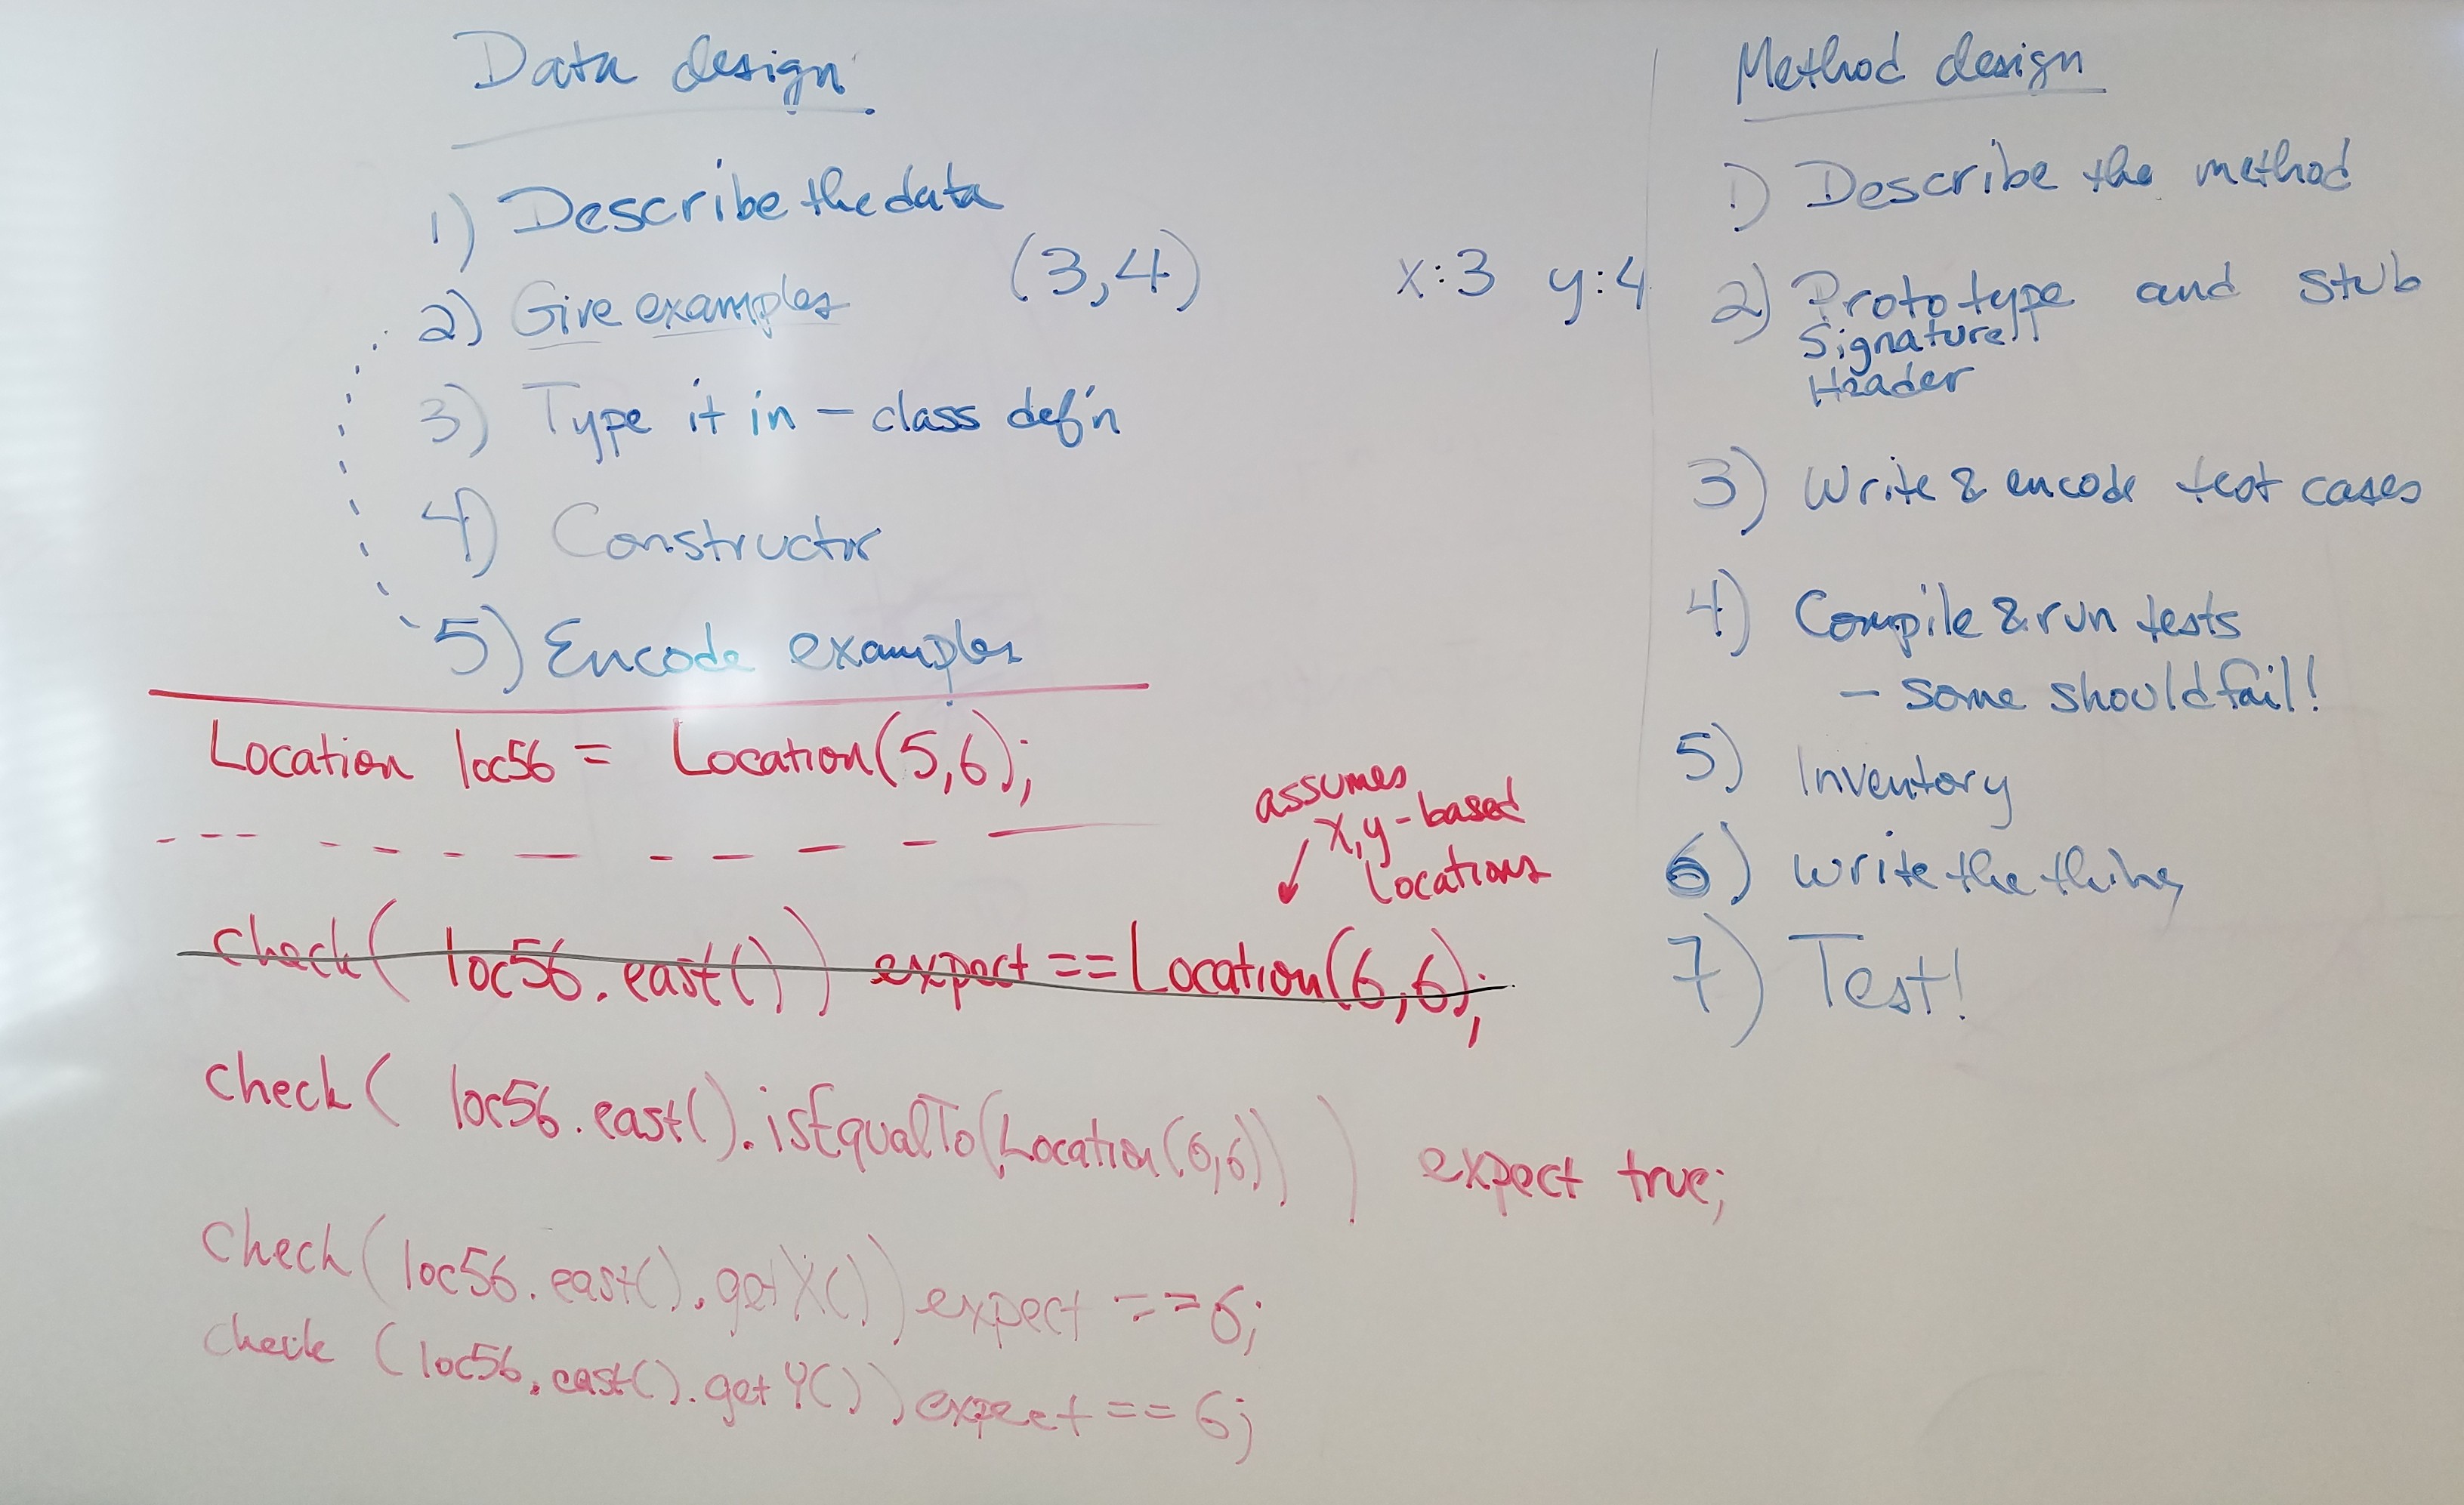 Data design
1) Describe the data
2) Give examples
(3,4)
x:3 y:4
3) Type it in - class def'n
4) Constructor
5) Encode examples
Location loc56 = Location(5,6);
assumes
x,y-based
Locations
check( loc56.east() ) expect == Location(6,6);
check( loc56.east().isEqualTo(Location(6,6)) ) expect true;
check(loc56.east().getX()) expect ==6;
check (loc56.east().getY()) expect == 6;
Method design
1) Describe the method
2) Prototype and stub
Signature
Header
3) Write & encode test cases
4) Compile & run tests
- some should fail!
5) Inventory
6) Write the thing
7) Test!